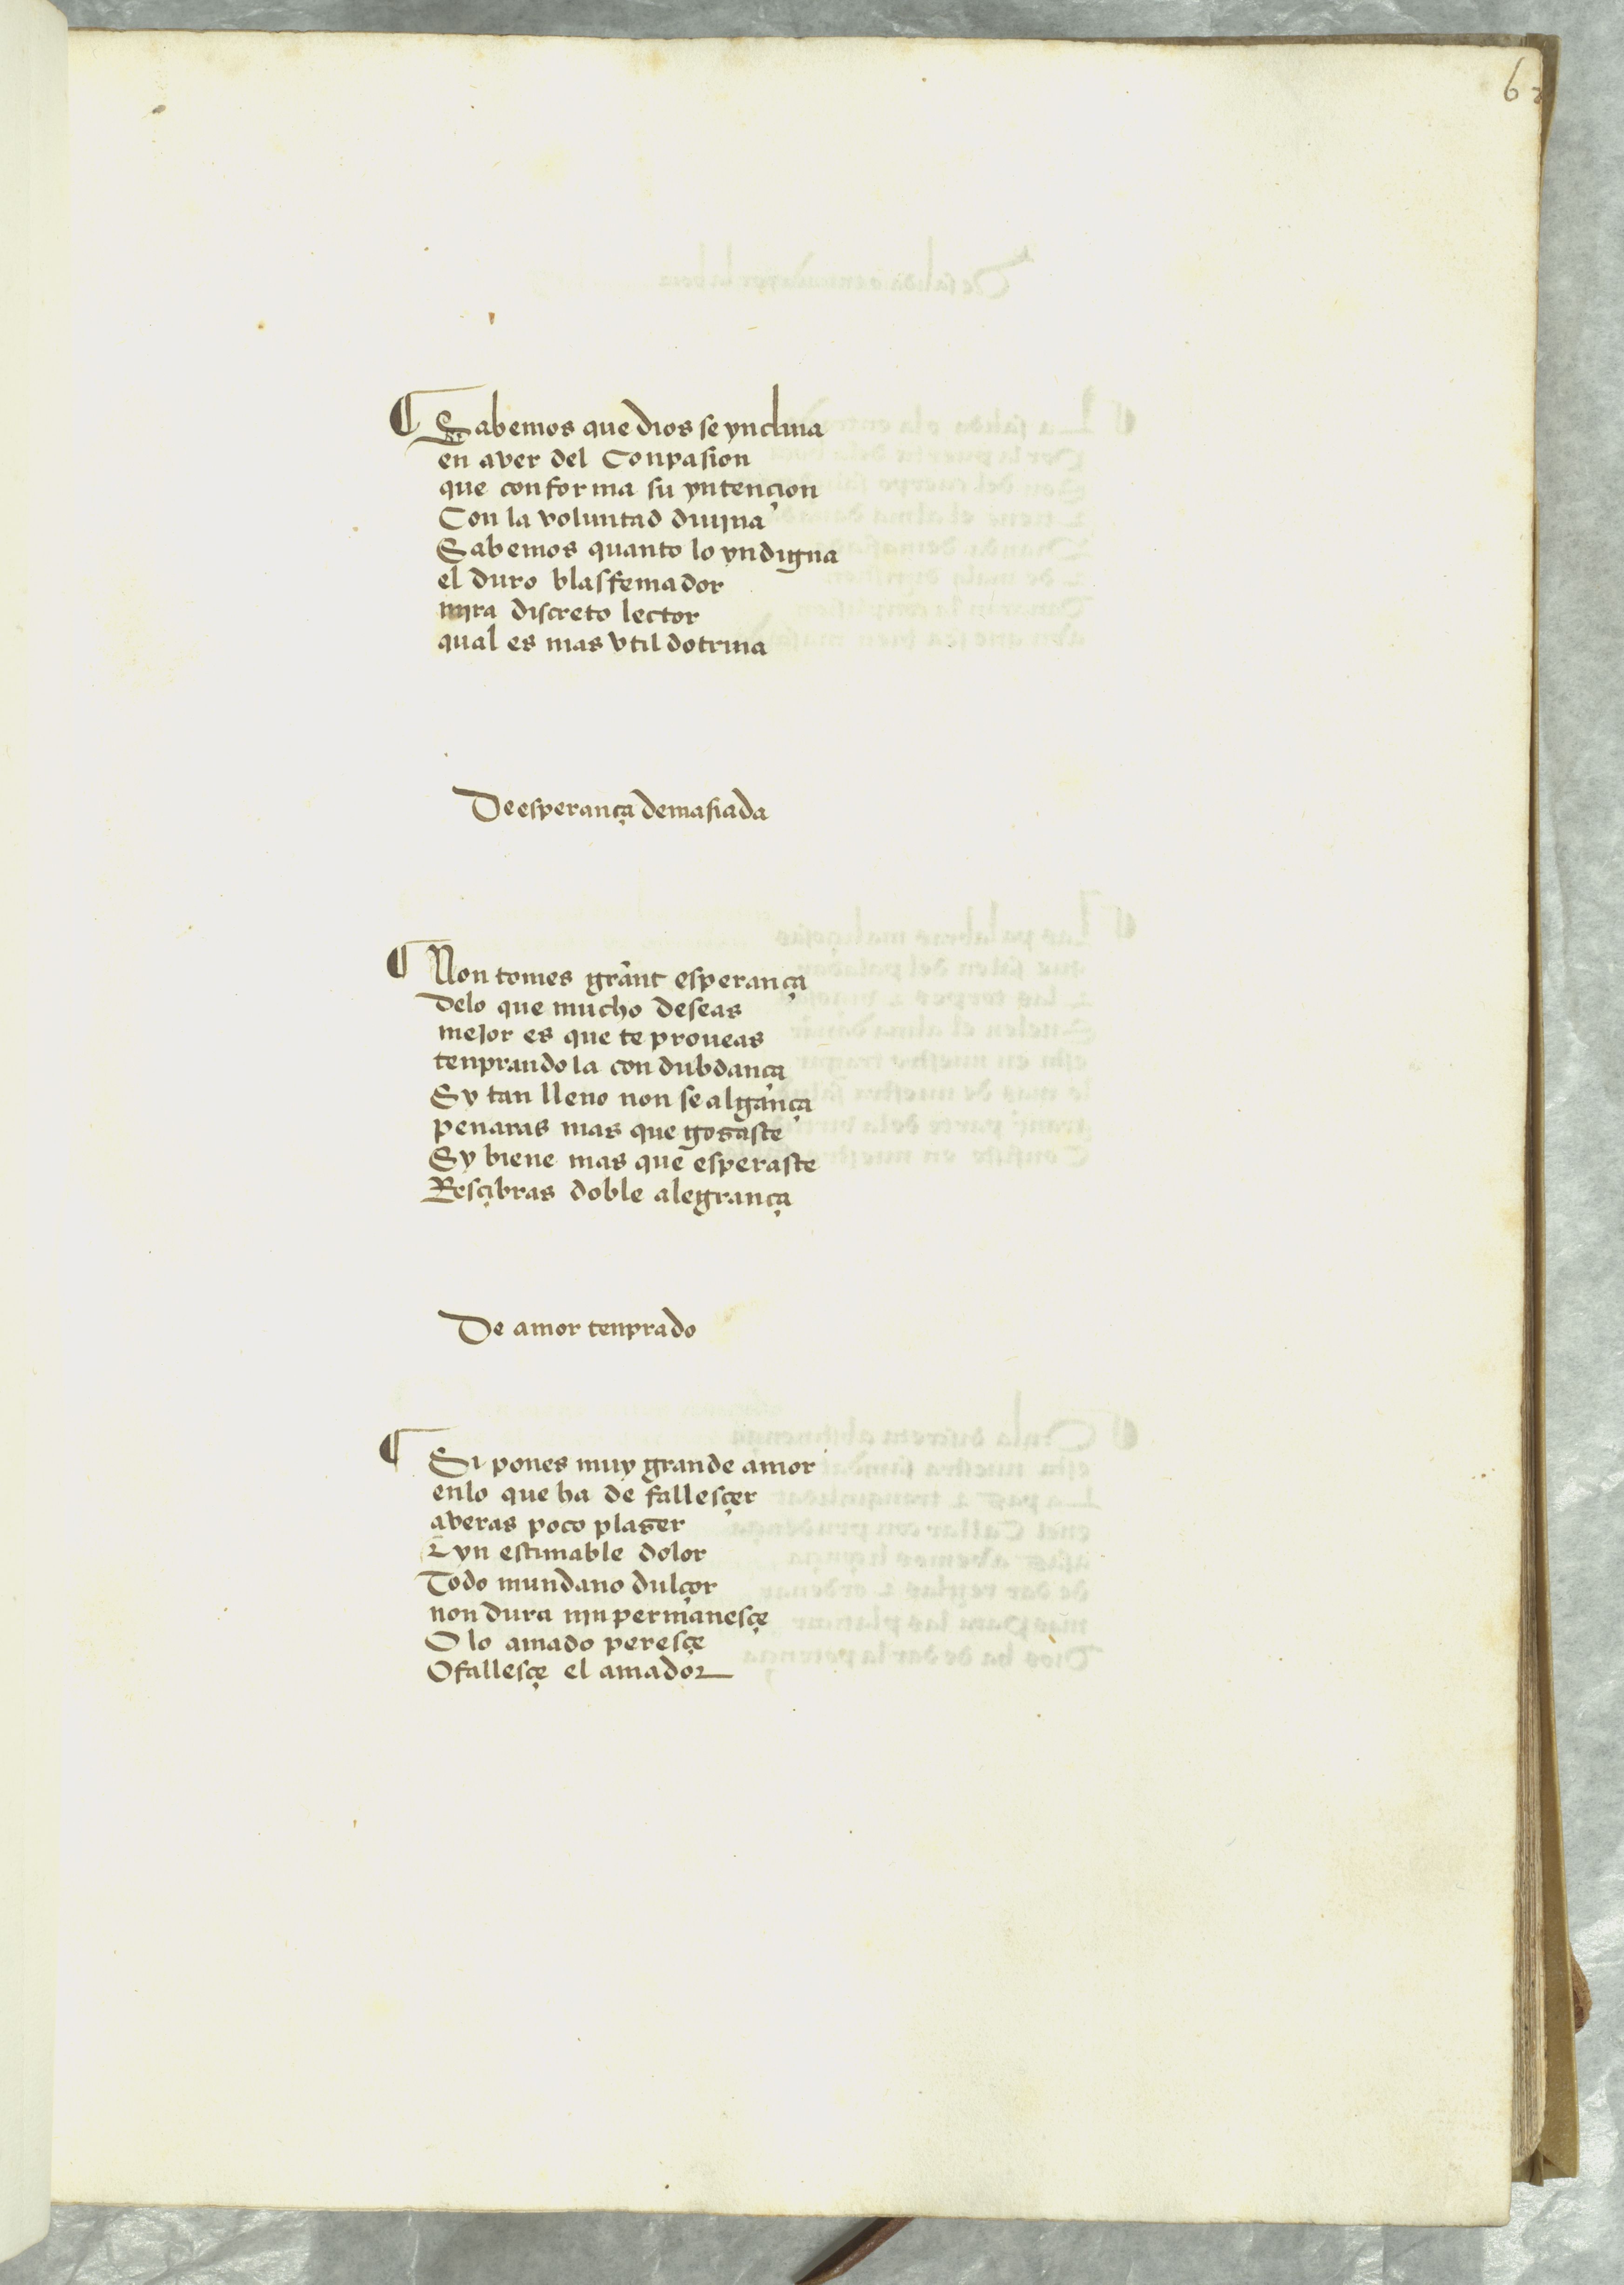 ¶ Sabemos que dios se ynclina
en aver del Conpasion
que conforma su yntençion
Con la voluntad diujna
Sabemos quanto lo yndigna
el duro blasfemador
mjra discreto lector
qual es mas vtil dotrina
De esperança demasiada
¶ Non tomes grant esperança
delo que mucho deseas
mejor es que te proueas
tenprando la con dubdança
Sy tan lleno non se algança
penaras mas que gozaste
Sy biene mas que esperaste
Resçibras doble alegrança
De amor tenprado
¶ Si pones muy grande amor
enlo que ha de fallesçer
averas poco plazer
τ yn estimable dolor
Todo mundano dulçor
non dura njn permanesçe
O lo amado peresçe
O fallesçe el amador